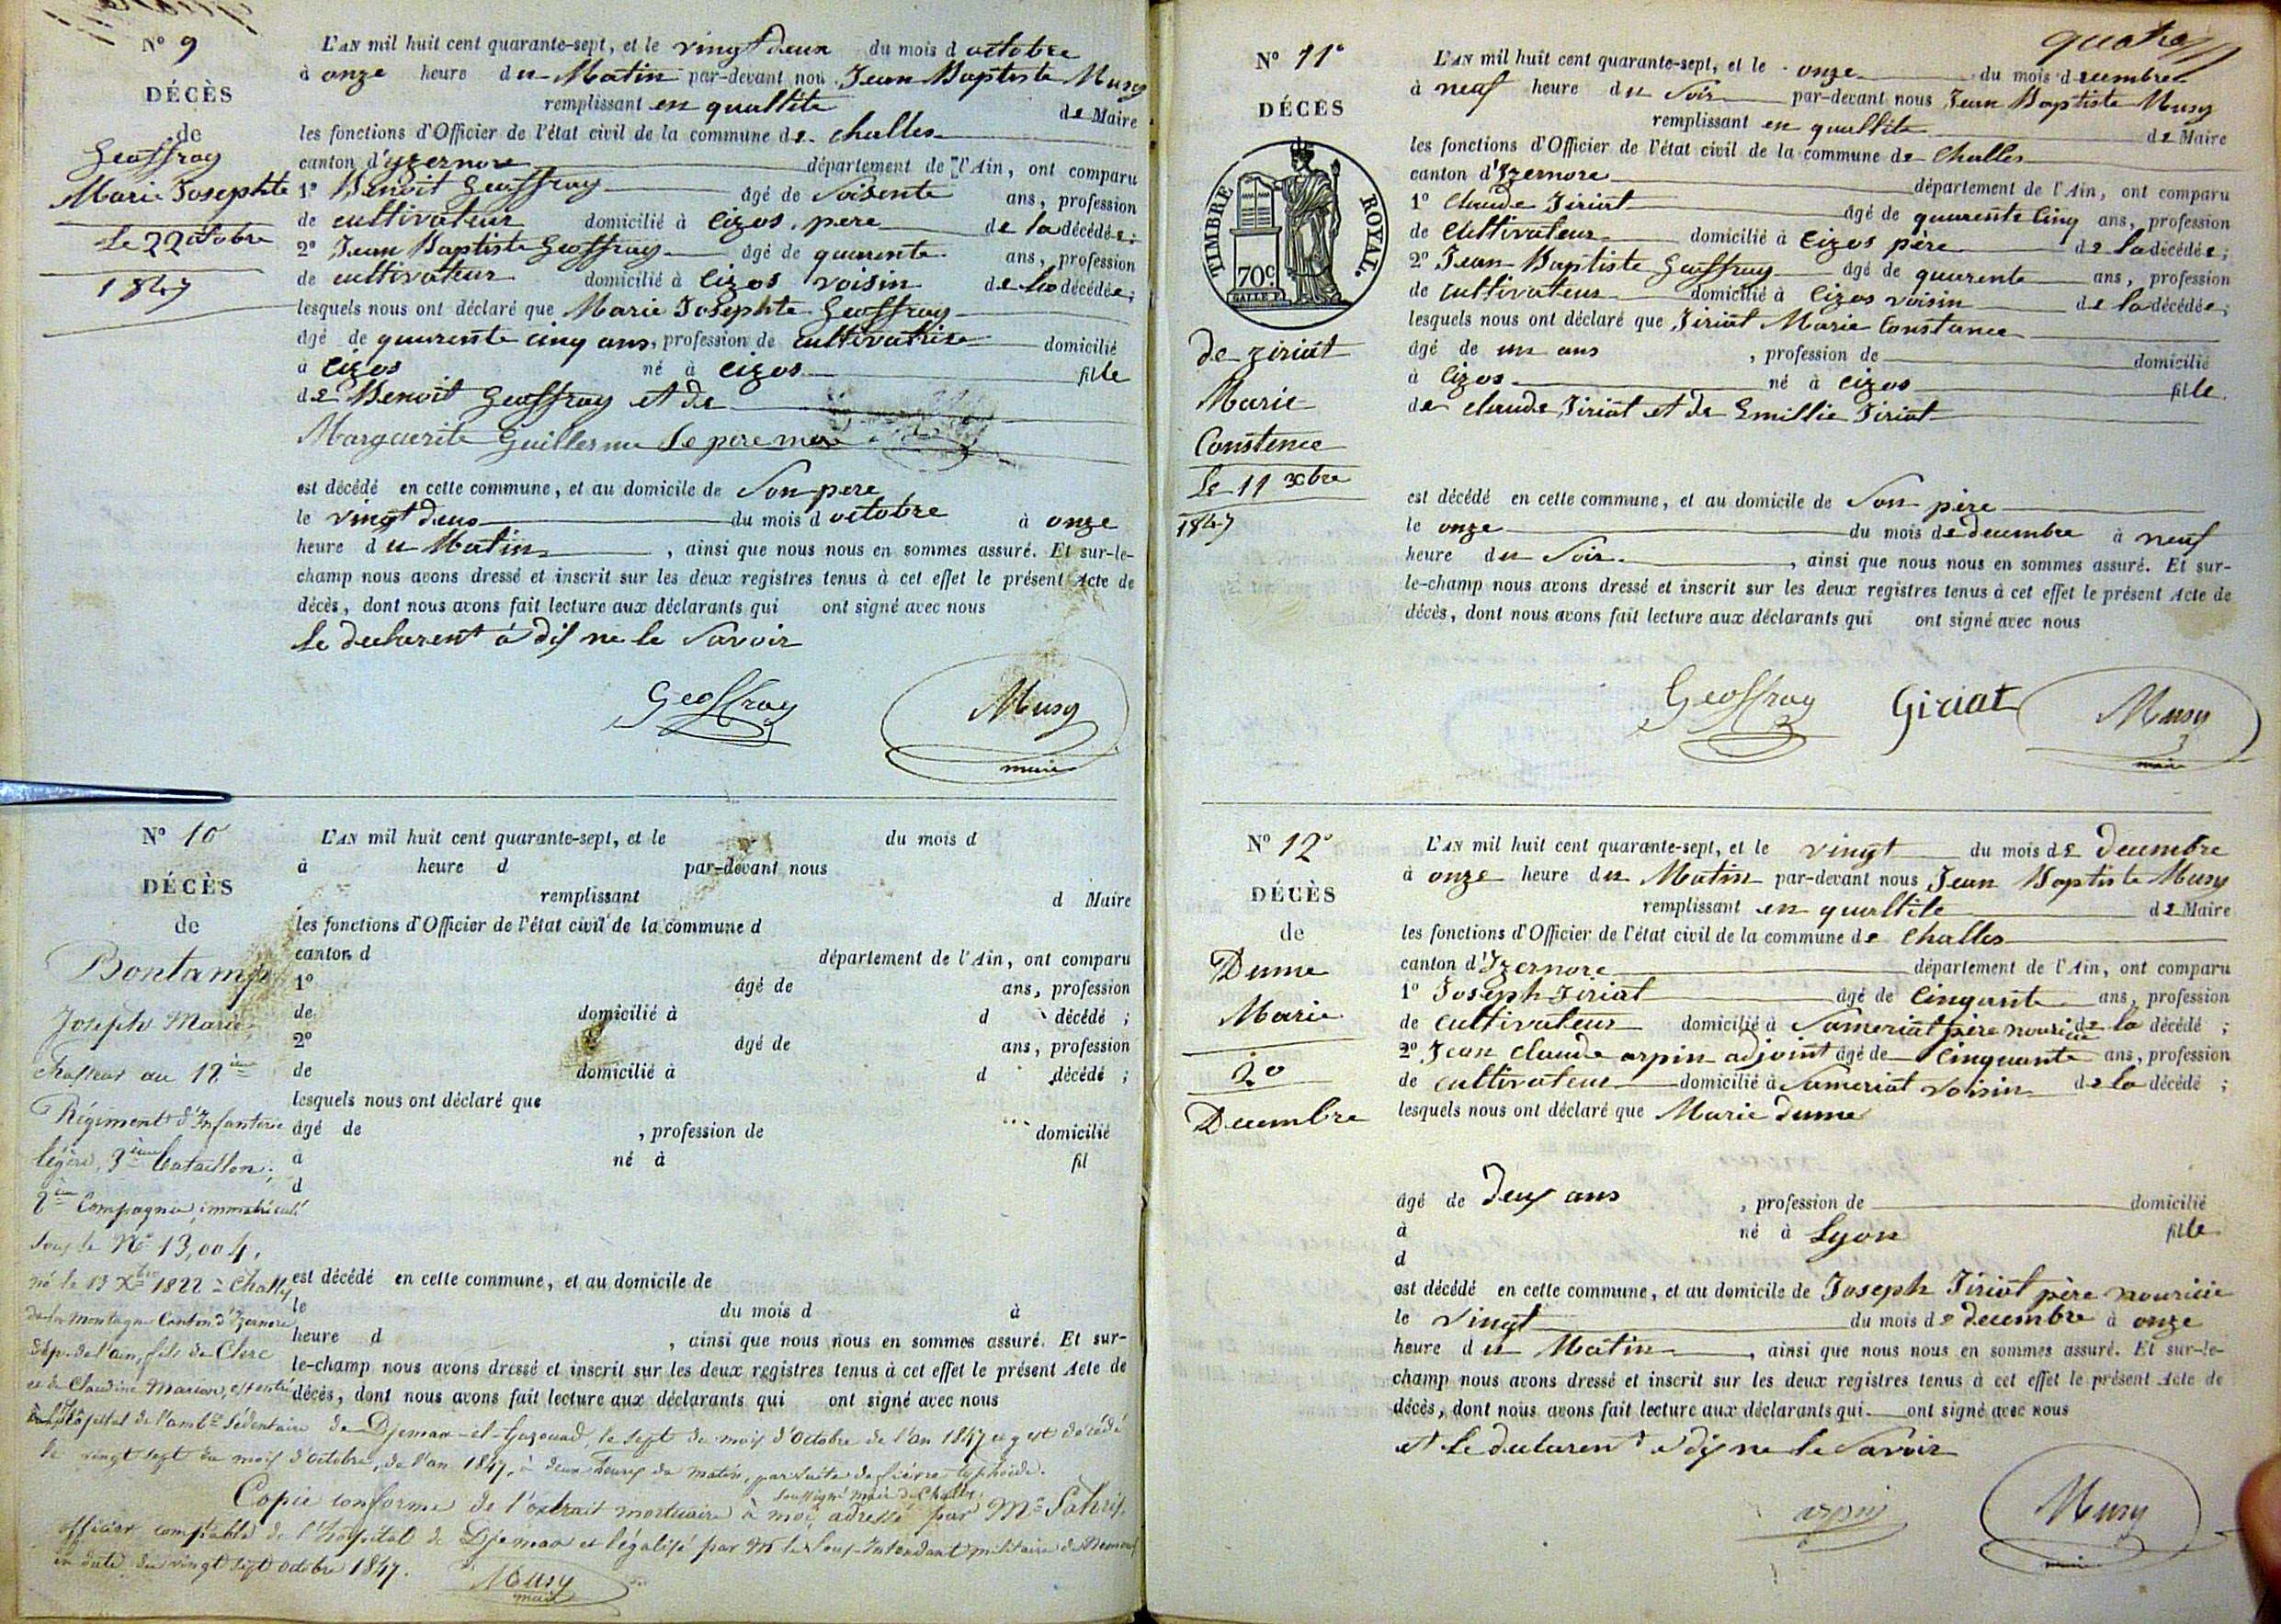 N° 9
DÉCÈS
de
Geoffray
Marie Josephte
Le 22 octobre
1847
L'AN mil huit cent quarante-sept, et le vingt deux du mois d octobre
à onze heure du Matin par-devant nou Jean Baptiste Musy
remplissant en quallité de Maire
les fonctions d'Officier de l'état civil de la commune de challes
canton d'yzernore département de l'Ain, ont comparu
1° Benoit Geoffray âgé de soisente ans, profession
de cultivateur domicilié à Cizos pere de la décédée;
2° Jean Baptiste Geoffray âgé de quarente ans, profession
de cultivateur domicilié à Cizos voisin de la décédée;
lesquels nous ont déclaré que Marie Josephte Geoffray
âgé de quarente cinq ans, profession de cultivatrise domicilié
à Cizos né à Cizos fille
de Benoit Geoffray et de
Marguerite Guillerme Se pere mere
est décédé en cette commune, et au domicile de Son pere
le vingt deus du mois d octobre à onze
heure du Matin, ainsi que nous nous en sommes assuré. Et sur-le-
champ nous avons dressé et inscrit sur les deux registres tenus à cet effet le présent Acte de
décès, dont nous avons fait lecture aux déclarants qui ont signé avec nous
Le declarent à dis ne le Savoir
Geoffray Musy
maire
N° 10
DÉCÈS
de
Bontamp
Joseph Marie
chasseur au 12ème
Régiment d'Infanterie
légère, 3ème bataillon,
2ème Compagnie, immatriculé
sous le N° 13,004,
né le 13 Xbre 1822 à Challes
de la Montagne Canton d'Izernore,
dép. de l'ain, fils de Clerc
et de Claudine Marion, est entré
L'AN mil huit cent quarante-sept, et le du mois d
à heure d par-devant nous
remplissant d Maire
les fonctions d'Officier de l'état civil de la commune d
canton d département de l'Ain, ont comparu
1° âgé de ans, profession
de domicilié à d décédé ;
2° âgé de ans, profession
de domicilié à d décédé ;
lesquels nous ont déclaré que
âgé de , profession de domicilié
à né à fil
d
est décédé en cette commune, et au domicile de
le du mois d à
heure d , ainsi que nous nous en sommes assuré. Et sur-
le-champ nous avons dressé et inscrit sur les deux registres tenus à cet effet le présent Acte de
décès, dont nous avons fait lecture aux déclarants qui ont signé avec nous
à l'hôpital de l'ambce Sédentaire de Djemaa-el-Gazouad, le sept du mois d'Octobre de l'an 1847 et y est décédé
le vingt sept du mois d'Octobre, de l'an 1847, à deux heures du matin, par suite de fièvre typhoïde.
soussigné maire de Challes
Copie conforme de l'extrait mortuaire à moi adressé par Mr
officier comptable de l'hôpital de Djemaa et légalisé par Mr le Sous-Intendant militaire de
en date du vingt sept octobre 1847.
Musy
maire
quatre
N° 11°
DÉCÈS
TIMBRE ROYAL.
70c
GALLE F.
de ziriat
Marie
Constence
Le 11 Xbre
1847
L'AN mil huit cent quarante-sept, et le onze du mois d ecembre
à neuf heure du Soir par-devant nous Jean Baptiste Musy
remplissant en quallité de Maire
les fonctions d'Officier de l'état civil de la commune de Challes
canton d'Izernore département de l'Ain, ont comparu
1° Claude Jiriat âgé de quarente Cinq ans, profession
de Cultivateur domicilié à Cizos père de la décédée;
2° Jean Baptiste Geoffray âgé de quarente ans, profession
de Cultivateur domicilié à Cizos voisin de la décédée;
lesquels nous ont déclaré que Jiriat Marie Constance
âgé de un ans , profession de domicilié
à Cizos né à Cizos fille
de claude Jiriat et de Emillie Jiriat
est décédé en cette commune, et au domicile de Son père
le onze du mois de decembre à neuf
heure du Soir , ainsi que nous nous en sommes assuré. Et sur-
le-champ nous avons dressé et inscrit sur les deux registres tenus à cet effet le présent Acte de
décès, dont nous avons fait lecture aux déclarants qui ont signé avec nous
Geoffray Giriat Musy
maire
N° 12°
DÉCÈS
de
Dume
Marie
20
Decembre
L'AN mil huit cent quarante-sept, et le vingt du mois de Decembre
à onze heure du Matin par-devant nous Jean Baptiste Musy
remplissant en quallité de Maire
les fonctions d'Officier de l'état civil de la commune de Challes
canton d'Izernore département de l'Ain, ont comparu
1° Joseph Jiriat âgé de Cinqante ans, profession
de Cultivateur domicilié à Sameriat père nouricie de la décédé ;
2° Jean Claude arpin adjoint âgé de Cinquante ans, profession
de Cultivateur domicilié à Sameriat voisin de la décédé ;
lesquels nous ont déclaré que Marie dume
âgé de Deux ans , profession de domicilié
à né à Lyon fille
d
est décédé en cette commune, et au domicile de Joseph Jiriat père nouricie
le Vingt du mois de decembre à onze
heure du Matin , ainsi que nous nous en sommes assuré. Et sur-le-
champ nous avons dressé et inscrit sur les deux registres tenus à cet effet le présent Acte de
décès, dont nous avons fait lecture aux déclarants qui ont signé avec nous
et le declarent à dis ne le Savoir
arpin Musy
maire